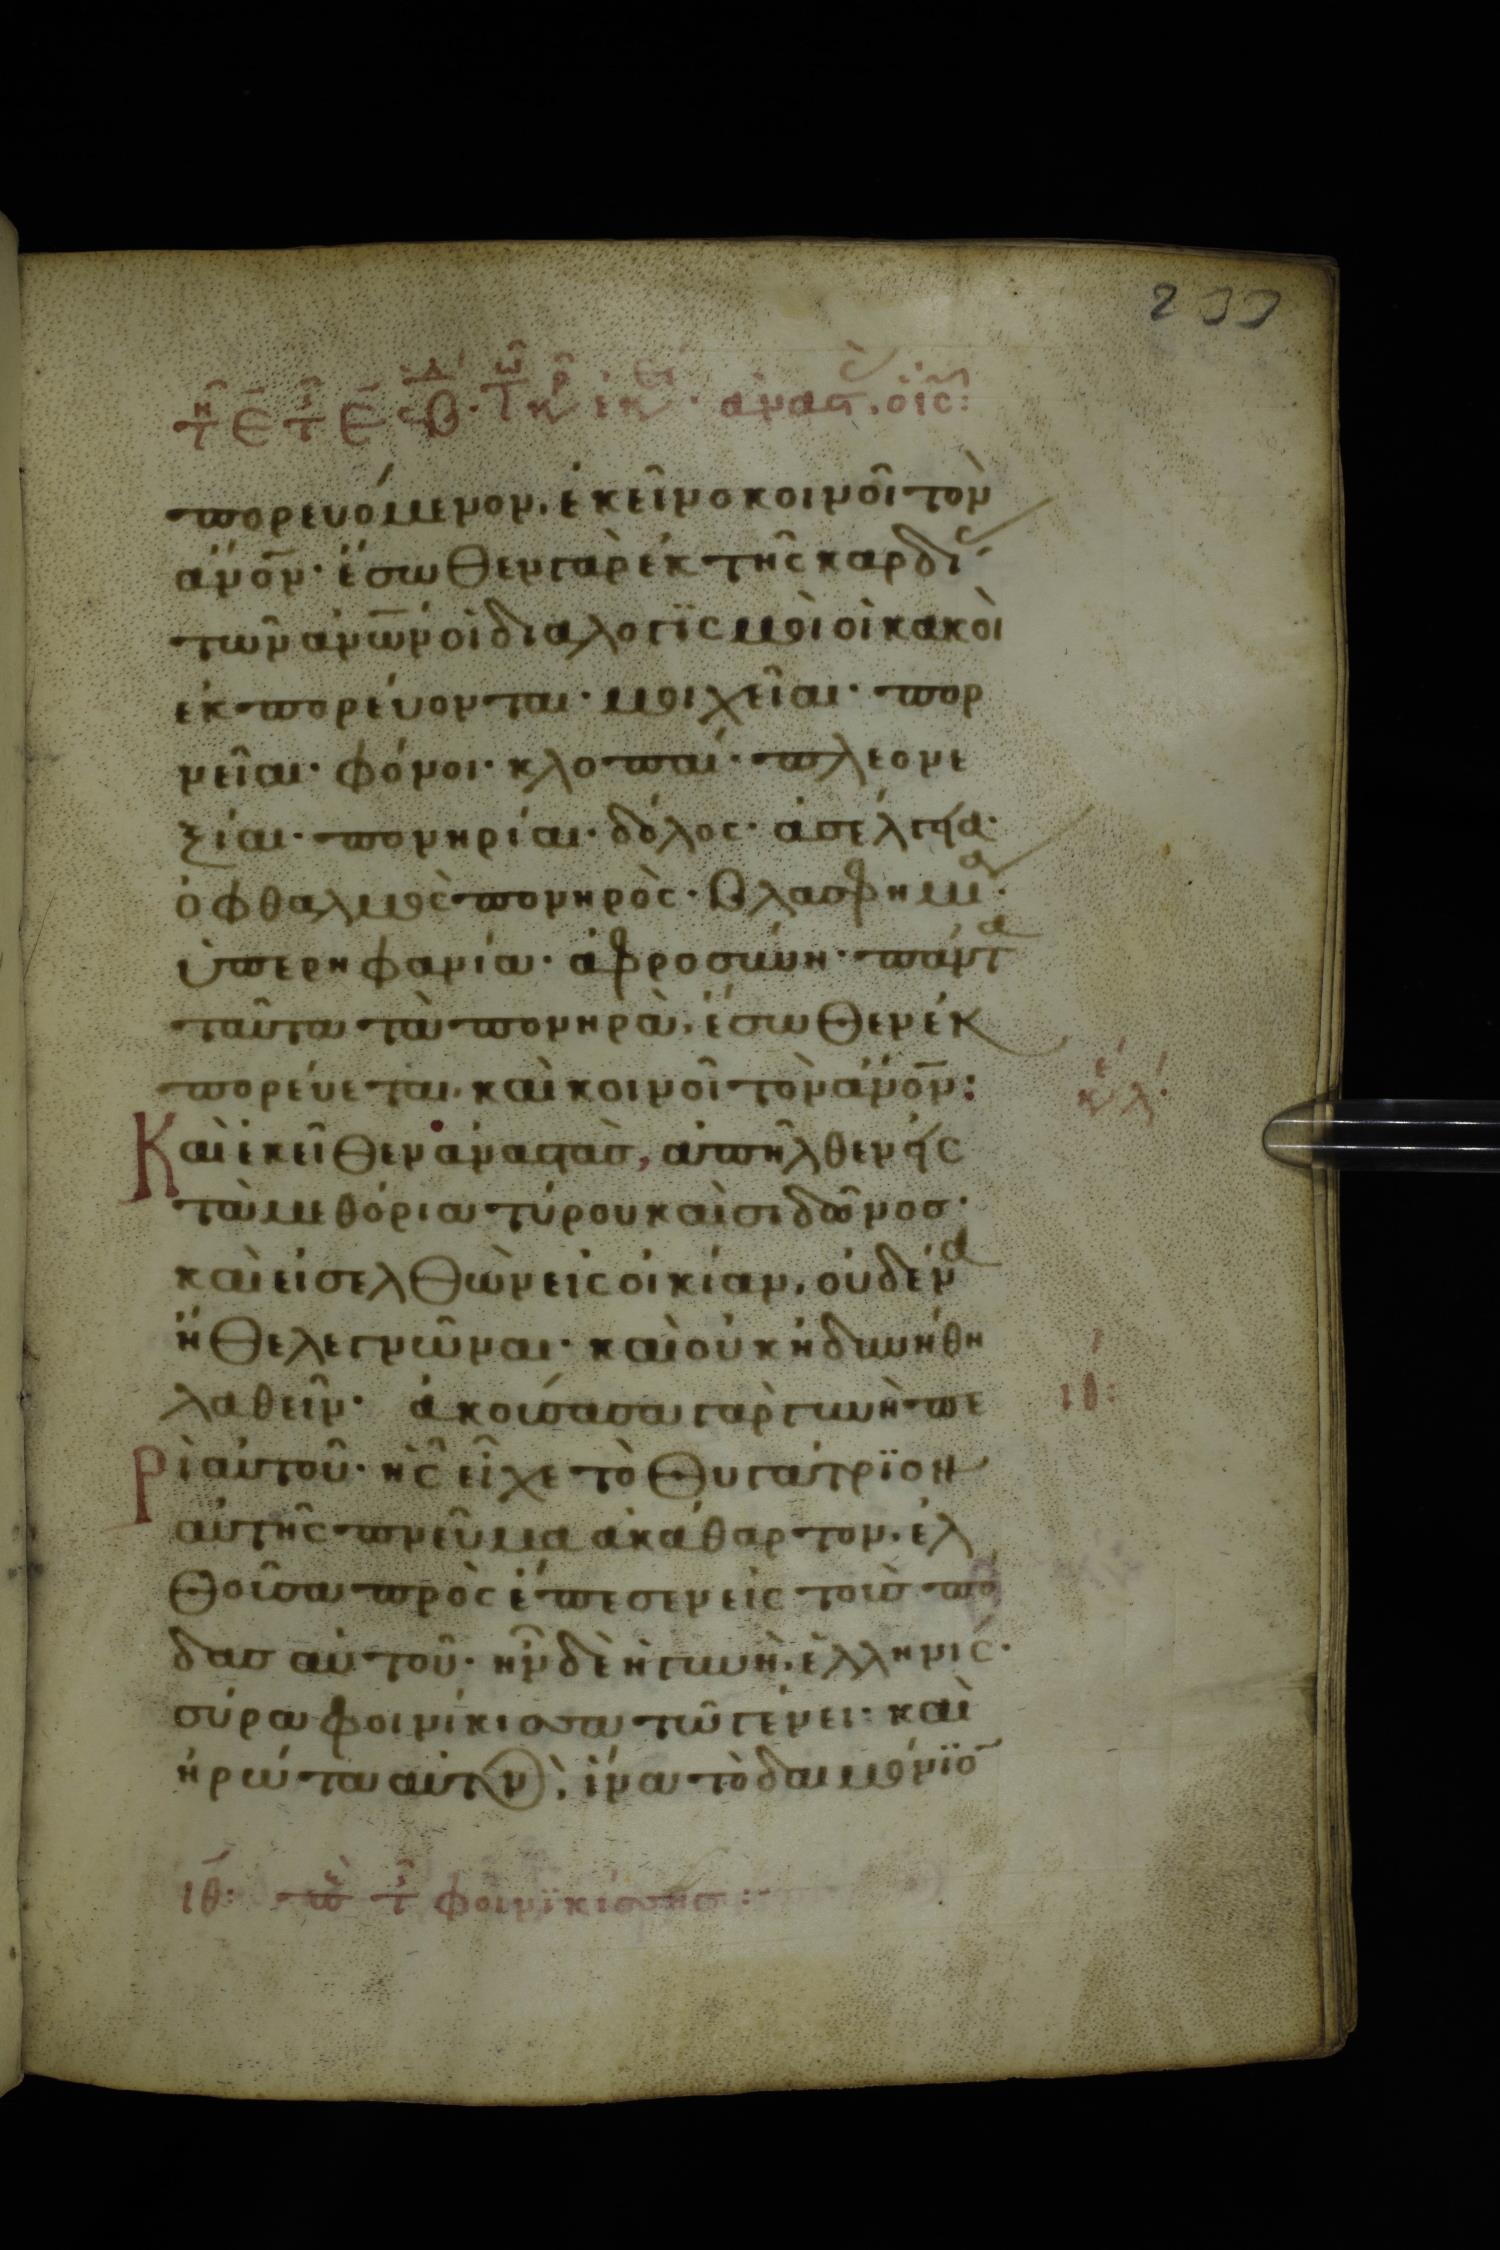 200
πορευόμενον, ἐκεῖνο κοινοῖ τὸν
ἄνο̅ν· ἔσωθεν γὰρ ἐκ τῆς καρδί
τῶν ἀνω̅ν οἱ διαλογϊσμοὶ οἱ κακοὶ
ἐκπορεύονται· μοιχεῖαι· πορ
νεῖαι· φόνοι· κλοπαί· πλεονε
ξίαι· πονηρίαι· δόλος· ἀσέλγεια·
ὀφθαλμὸς πονηρὸς· βλασφημία·
ὑπερηφανία· ἀφροσύνη· πάντα
ταῦτα τὰ πονηρὰ, ἔσωθεν ἐκ
πορεύεται, καὶ κοινοῖ τὸν ἄνο̅ν:
Καὶ ἐκεῖθεν ἀναστὰσ, ἀπῆλθεν εἰς
τὰ μεθόρια τύρου καὶ σιδῶνοσ·
καὶ εἰσελθὼν εἰς οἰκίαν, οὐδένα
ἤθελε γνῶναι· καὶ οὐκ ἠδυνήθη
λαθεῖν· ἀκούσασα γὰρ γυνὴ πε
Ρὶ αὐτοῦ· ἧς εἶχε τὸ θυγάτρϊον
αὐτῆς πνεῦμα ἀκάθαρτον, ἐλ
θοῦσα πρὸς ἔπεσεν εἰς τοὺσ πό
δασ αὐτοῦ· ἦν δὲ ἡ γυνὴ, ἑλληνίς·
σύρα φοινίκισσα τῶ γένει· καὶ
ἠρώτα αὐτὸν, ἵνα τὸ δαιμόνϊο̅
ιθ:
ιθ: φοινϊκίσσησ: